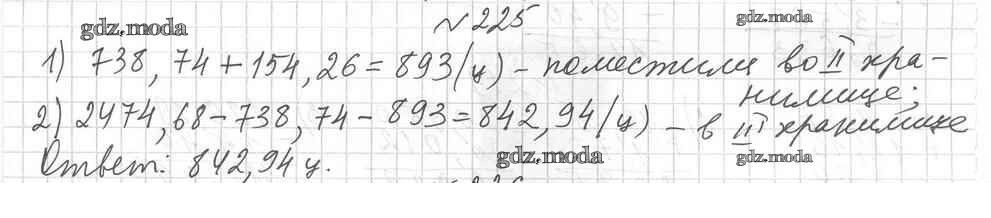 №225
gdz.moda
gdz.moda
1) 738,74+154,26=893(ц) - поместили во II хра-
нилище;
2) 2474,68-738,74-893=842,94(ц) - в III хранилище
Ответ: 842,94 ц.
gdz.moda
gdz.moda